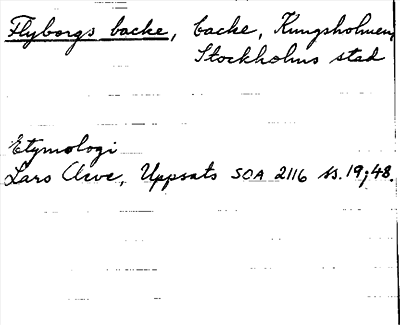 Flyborgs backe, backe, Kungsholmen,
Stockholms stad
Etymologi
Lars Cleve, Uppsats SOA 2116 ss. 19, 48.